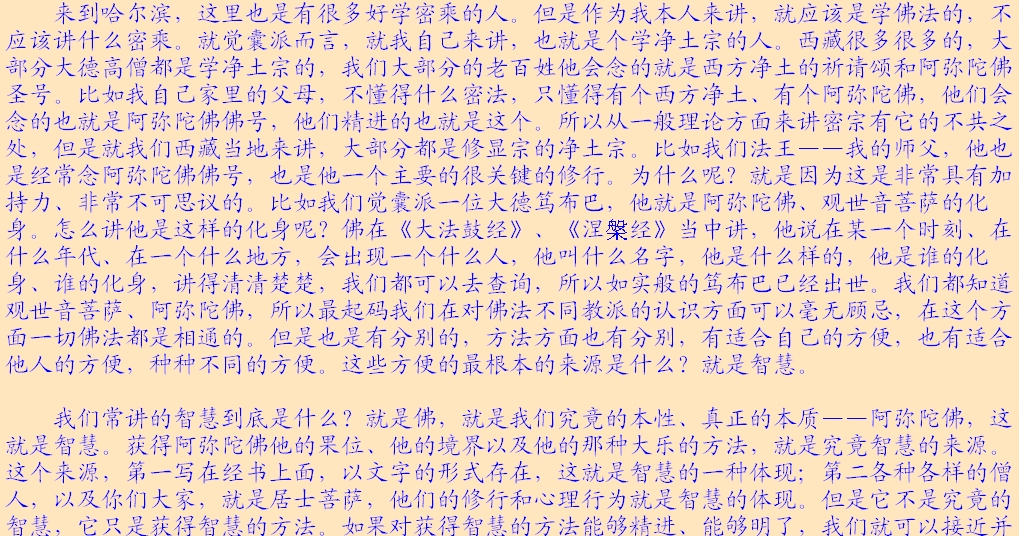 来到哈尔滨，这里也是有很多好学密乘的人。但是作为我本人来讲，就应该是学佛法的，不
应该讲什么密乘。就觉囊派而言，就我自己来讲，也就是个学净土宗的人。西藏很多很多的，大
部分大德高僧都是学净土宗的，我们大部分的老百姓他会念的就是西方净土的祈请颂和阿弥陀佛
圣号。比如我自己家里的父母，不懂得什么密法，只懂得有个西方净土、有个阿弥陀佛，他们会
念的也就是阿弥陀佛佛号，他们精进的也就是这个。所以从一般理论方面来讲密宗有它的不共之
处，但是就我们西藏当地来讲，大部分都是修显宗的净土宗。比如我们法王——我的师父，他也
是经常念阿弥陀佛佛号，也是他一个主要的很关键的修行。为什么呢？就是因为这是非常具有加
持力、非常不可思议的。比如我们觉囊派一位大德笃布巴，他就是阿弥陀佛、观世音菩萨的化
身。怎么讲他是这样的化身呢？佛在《大法鼓经》、《涅槃经》当中讲，他说在某一个时刻、在
什么年代、在一个什么地方，会出现一个什么人，他叫什么名字，他是什么样的，他是谁的化
身、谁的化身，讲得清清楚楚，我们都可以去查询，所以如实般的笃布巴已经出世。我们都知道
观世音菩萨、阿弥陀佛，所以最起码我们在对佛法不同教派的认识方面可以毫无顾忌，在这个方
面一切佛法都是相通的。但是也是有分别的，方法方面也有分别，有适合自己的方便，也有适合
他人的方便，种种不同的方便。这些方便的最根本的来源是什么？就是智慧。
我们常讲的智慧到底是什么？就是佛，就是我们究竟的本性、真正的本质——阿弥陀佛，这
就是智慧。获得阿弥陀佛他的果位、他的境界以及他的那种大乐的方法，就是究竟智慧的来源。
这个来源，第一写在经书上面，以文字的形式存在，这就是智慧的一种体现；第二各种各样的僧
人，以及你们大家，就是居士菩萨，他们的修行和心理行为就是智慧的体现。但是它不是究竟的
智慧，它只是获得智慧的方法。如果对获得智慧的方法能够精进、能够明了，我们就可以接近并